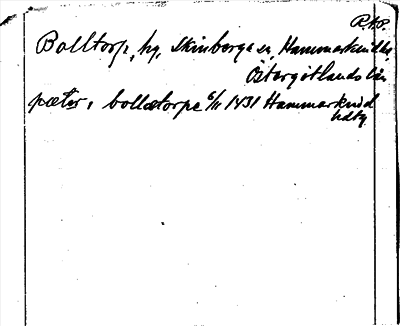 R.A.P.
Bolltorp, hg, Skinberga sn, Hammarkinds hd,
Östergötlands län
pæter i bollætorpe 6/11 1431 Hammarkind
hdtg